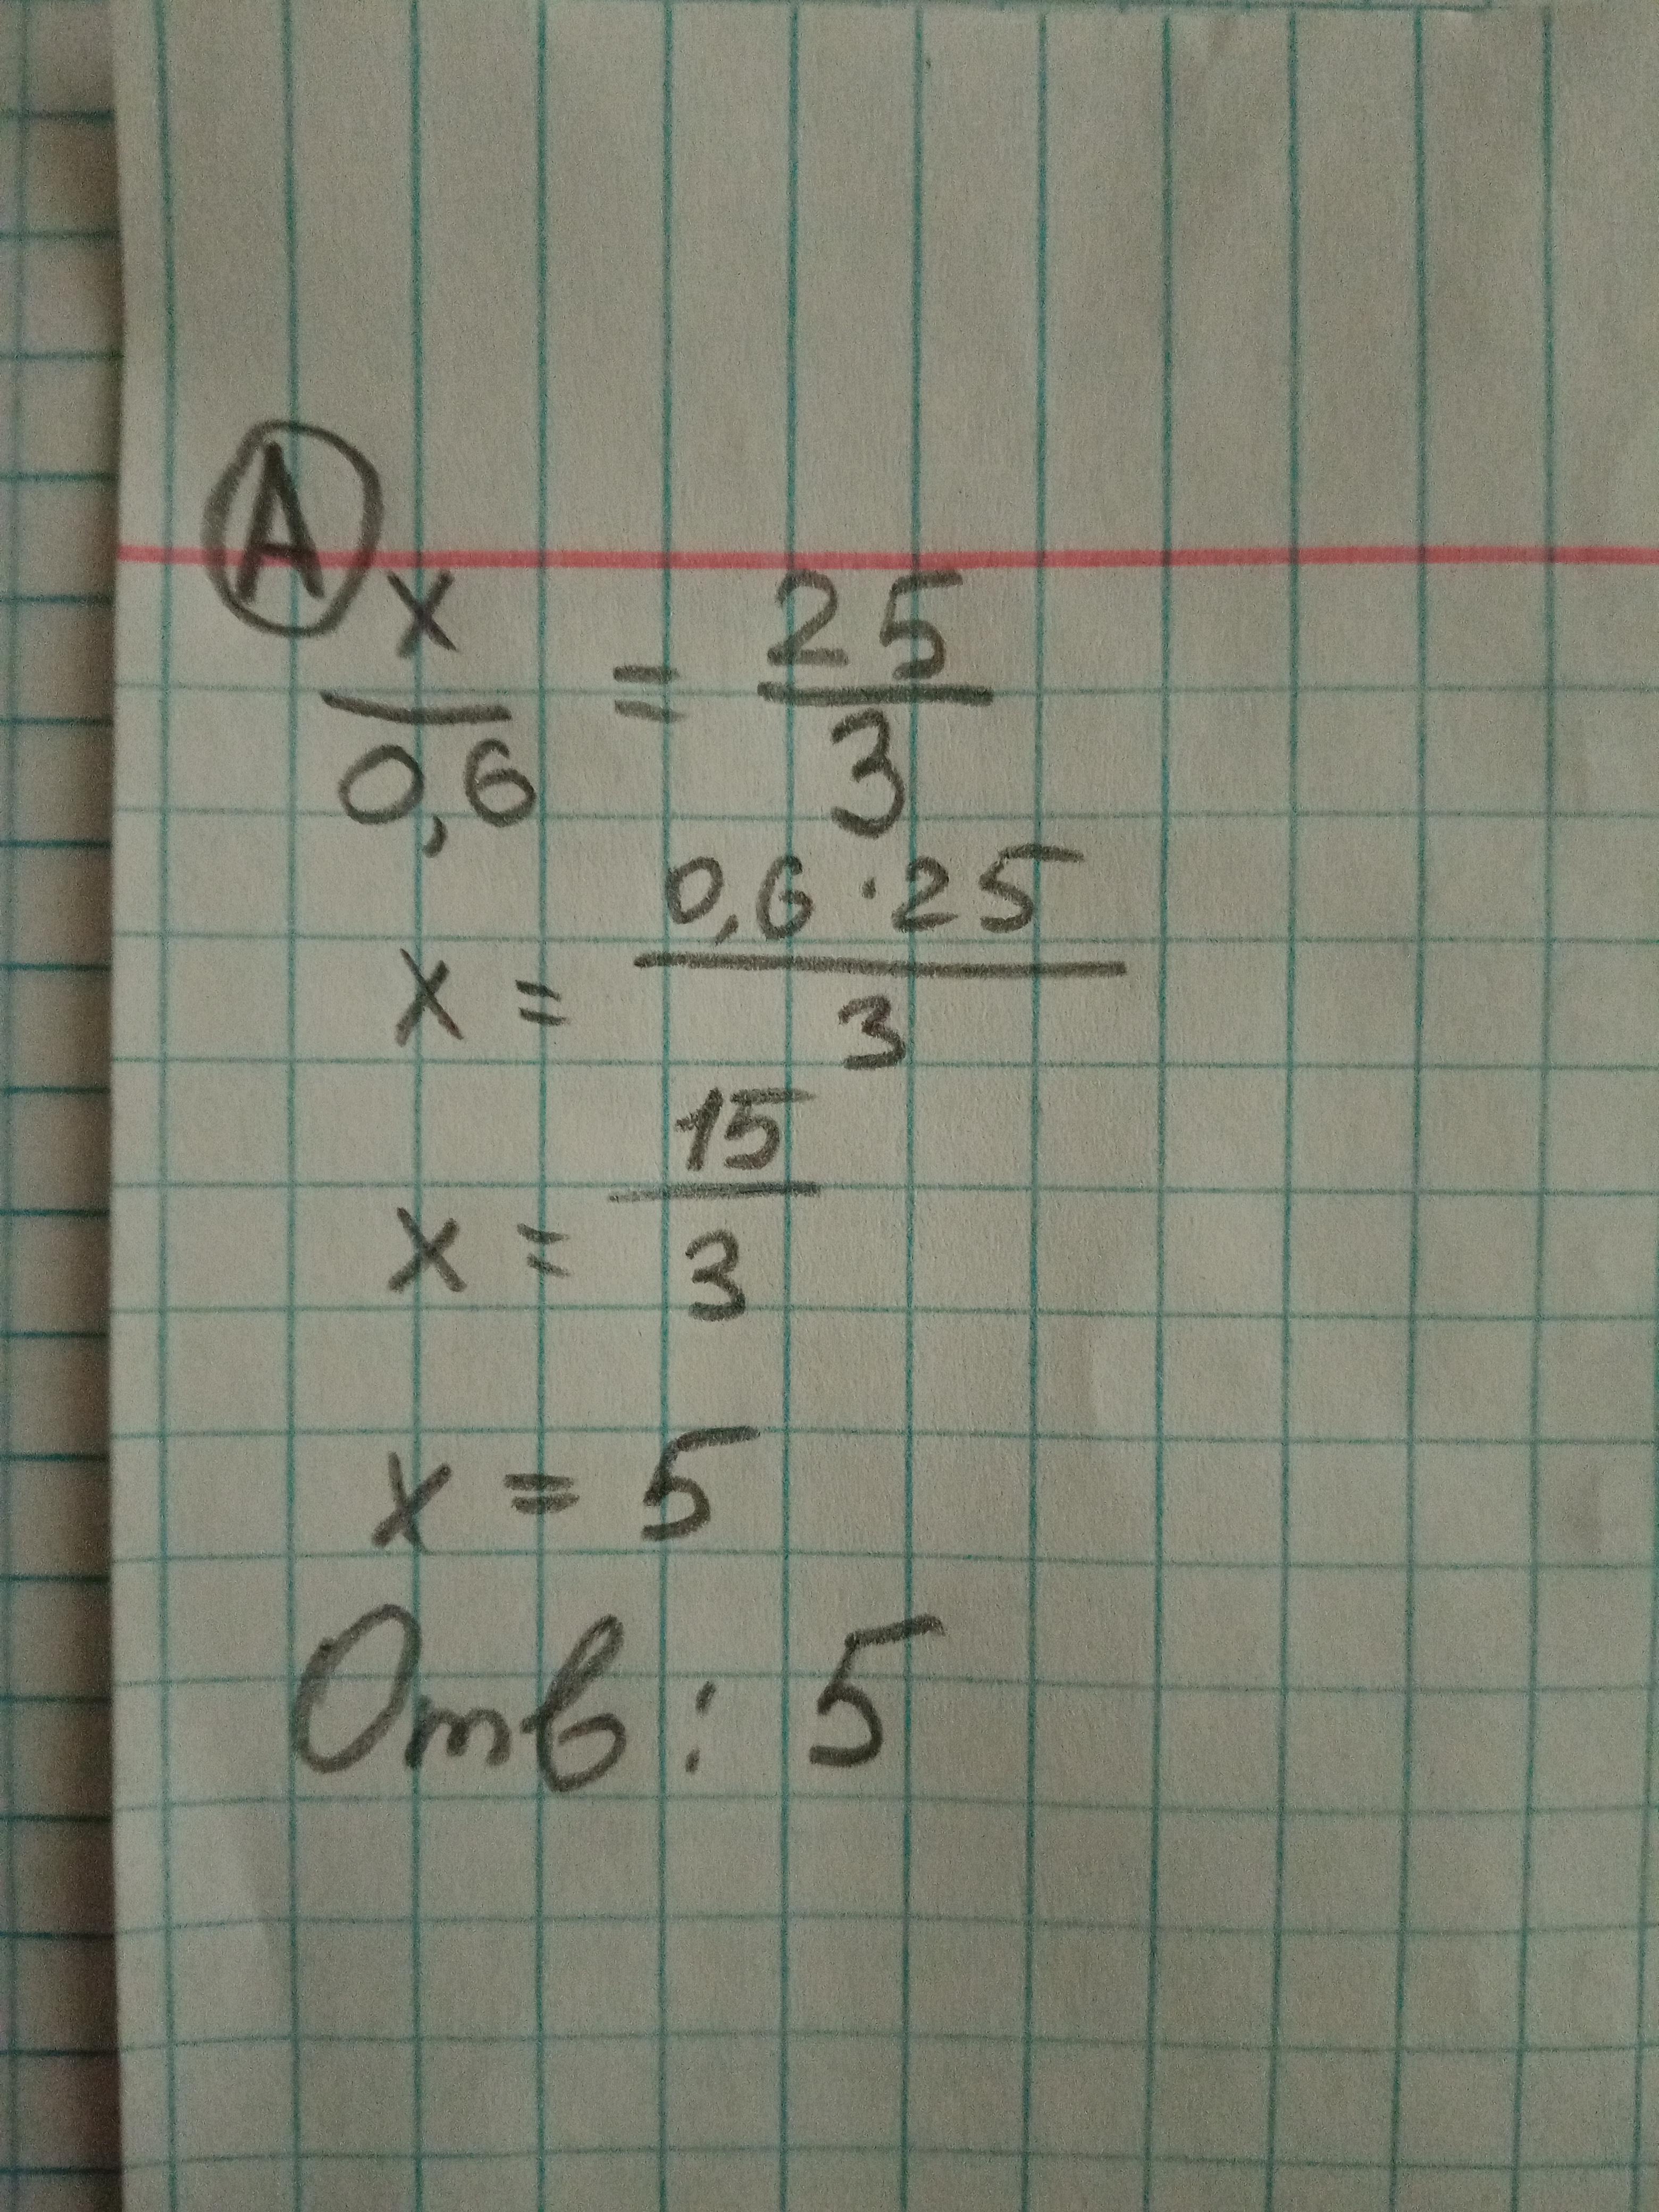 А
x/0,6 = 25/3
x = 0,6 · 25/3
x = 15/3
x = 5
Отв: 5